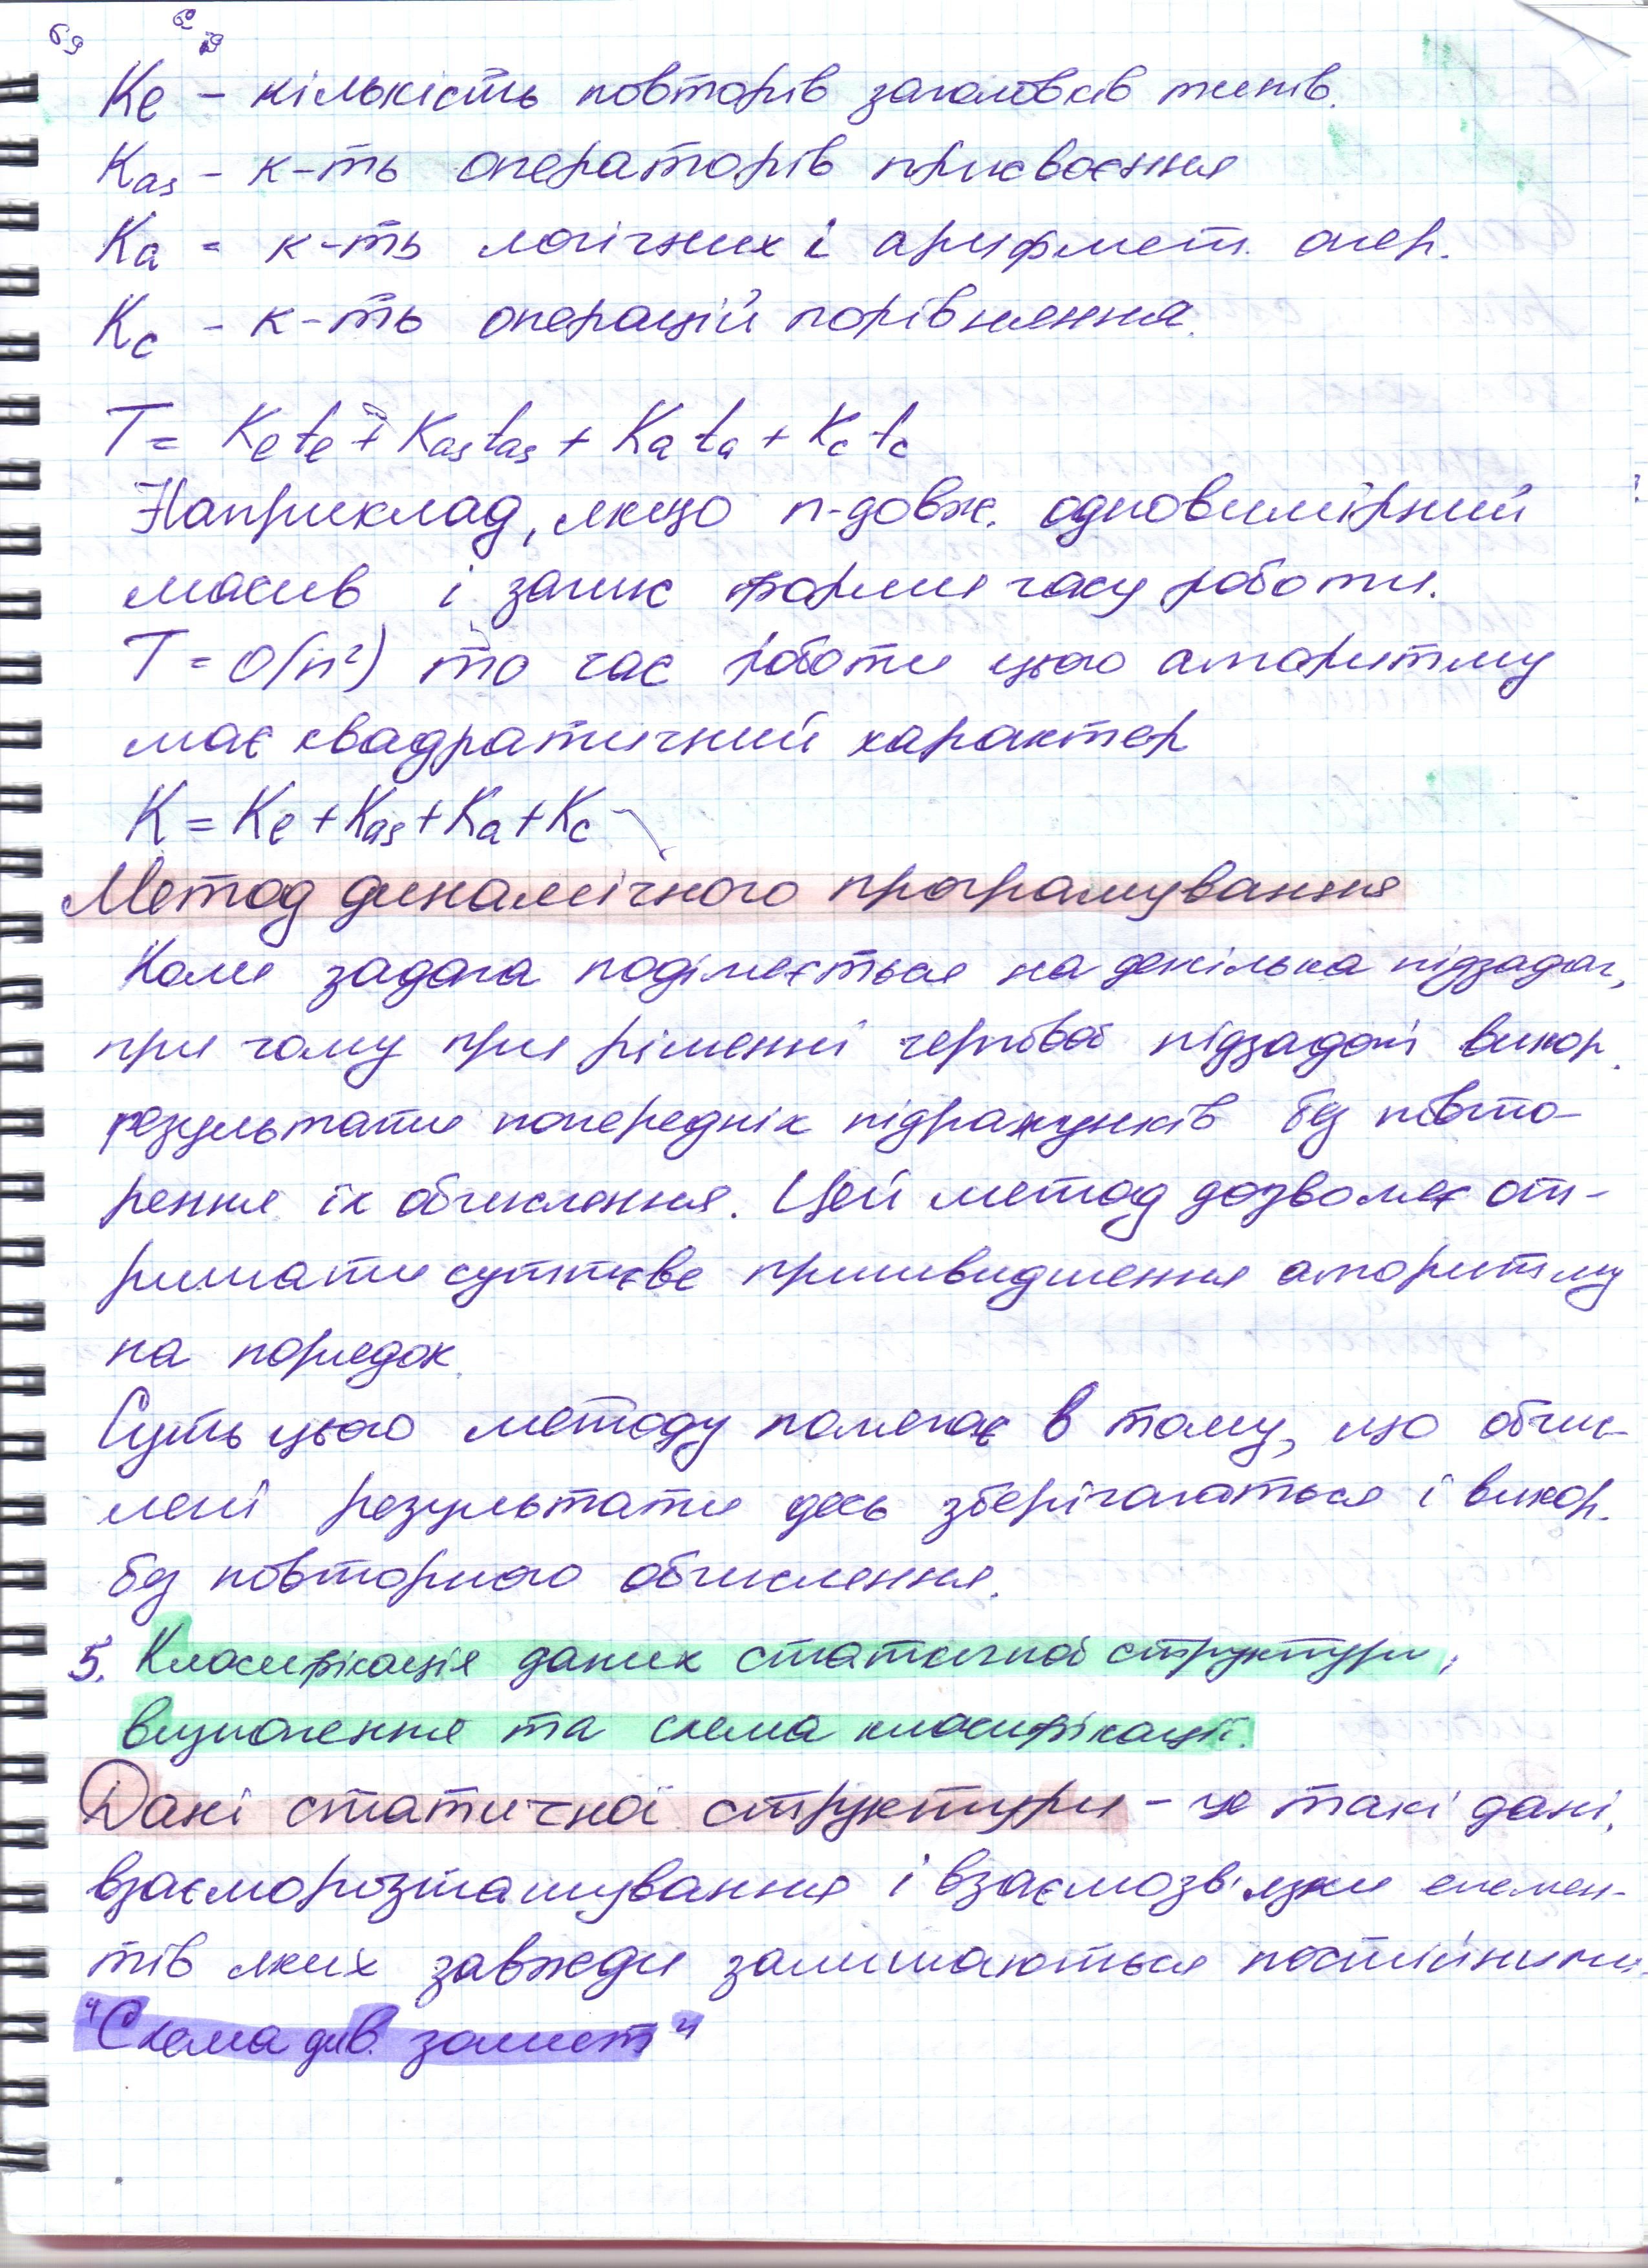 Kₑ - кількість повторів заголовків типів.
Kas - к-ть операторів присвоєння
Ka - к-ть логічних і арифмет. опер.
Kc - к-ть операцій порівняння.
T = Kₑtₑ + Kas tas + Ka ta + Kc tc
Наприклад, якщо n-довж. одновимірний
масив і запис форми часу роботи.
T = O(n²) то час роботи цього алгоритму
має квадратичний характер
K = Kₑ + Kas + Ka + Kc
Метод динамічного програмування
Коли задача поділяється на декілька підзадач,
при чому при рішенні чергової підзадачі викор.
результати попередніх підрахунків без повто-
рення їх обчислення. Цей метод дозволяє от-
римати суттєве пришвидшення алгоритму
на порядок.
Суть цього методу полягає в тому, що обчис-
лені результати десь зберігаються і викор.
без повторного обчислення.
5. Класифікація даних статичної структури,
визначення та схема класифікації.
Дані статичної структури - це такі дані,
взаєморозташування і взаємозв'язки елемен-
тів яких завжди залишаються постійними.
"Схема див."